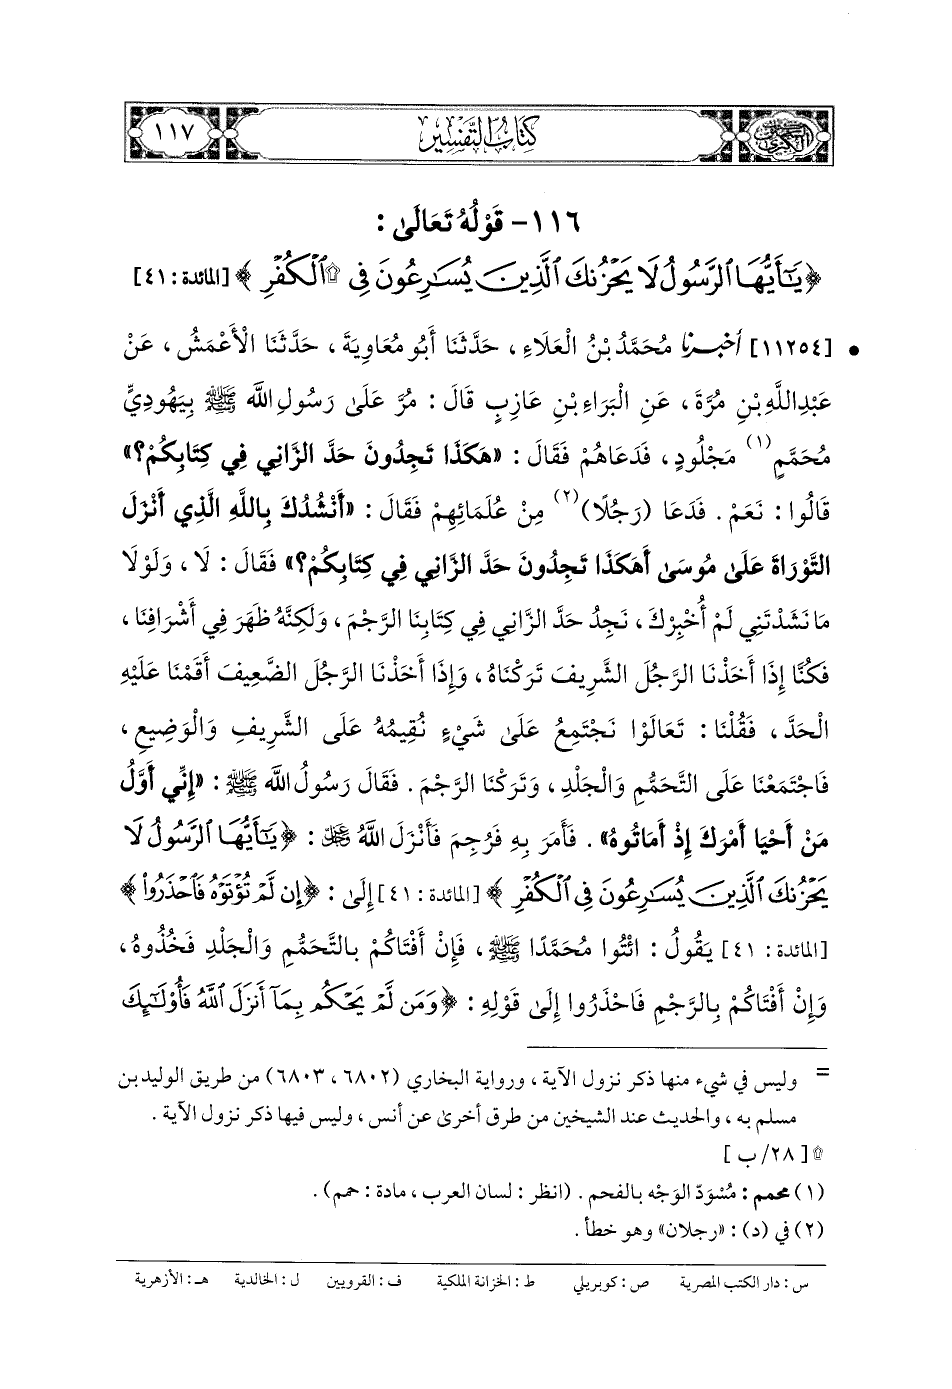 ١١٧
كتاب التفسير
١١٦- قَوْلُهُ تَعَالَىٰ :
﴿ يَٰٓأَيُّهَا ٱلرَّسُولُ لَا يَحْزُنكَ ٱلَّذِينَ يُسَٰرِعُونَ فِى ۩ ٱلْكُفْرِ ﴾ [المائدة : ٤١]
• [١١٢٥٤] أخبرنا مُحَمَّدُ بْنُ الْعَلَاءِ ، حَدَّثَنَا أَبُو مُعَاوِيَةَ ، حَدَّثَنَا الْأَعْمَشُ ، عَنْ
عَبْدِاللَّهِ بْنِ مُرَّةَ ، عَنِ الْبَرَاءِ بْنِ عَازِبٍ قَالَ : مُرَّ عَلَىٰ رَسُولِ اللَّه ﷺ بِيَهُودِيٍّ
مُحَمَّمٍ(١) مَجْلُودٍ ، فَدَعَاهُمْ فَقَالَ : «هَكَذَا تَجِدُونَ حَدَّ الزَّانِي فِي كِتَابِكُمْ؟»
قَالُوا : نَعَمْ . فَدَعَا (رَجُلًا)(٢) مِنْ عُلَمَائِهِمْ فَقَالَ : «أَنْشُدُكَ بِاللَّهِ الَّذِي أَنْزَلَ
التَّوْرَاةَ عَلَىٰ مُوسَىٰ أَهَكَذَا تَجِدُونَ حَدَّ الزَّانِي فِي كِتَابِكُمْ؟» فَقَالَ : لَا ، وَلَوْلَا
مَا نَشَدْتَنِي لَمْ أُخْبِرْكَ ، نَجِدُ حَدَّ الزَّانِي فِي كِتَابِنَا الرَّجْمَ ، وَلَكِنَّهُ ظَهَرَ فِي أَشْرَافِنَا ،
فَكُنَّا إِذَا أَخَذْنَا الرَّجُلَ الشَّرِيفَ تَرَكْنَاهُ ، وَإِذَا أَخَذْنَا الرَّجُلَ الضَّعِيفَ أَقَمْنَا عَلَيْهِ
الْحَدَّ ، فَقُلْنَا : تَعَالَوْا نَجْتَمِعُ عَلَىٰ شَيْءٍ نُقِيمُهُ عَلَى الشَّرِيفِ وَالْوَضِيعِ ،
فَاجْتَمَعْنَا عَلَى التَّحَمُّمِ وَالْجَلْدِ ، وَتَرَكْنَا الرَّجْمَ . فَقَالَ رَسُولُ اللَّه ﷺ : «إِنِّي أَوَّلُ
مَنْ أَحْيَا أَمْرَكَ إِذْ أَمَاتُوهُ» . فَأَمَرَ بِهِ فَرُجِمَ فَأَنْزَلَ اللَّهُ ﷻ : ﴿ يَٰٓأَيُّهَا ٱلرَّسُولُ لَا
يَحْزُنكَ ٱلَّذِينَ يُسَٰرِعُونَ فِى ٱلْكُفْرِ ﴾ [المائدة : ٤١] إِلَىٰ : ﴿إِن لَّمْ تُؤْتَوْهُ فَٱحْذَرُوا۟ ﴾
[المائدة : ٤١] يَقُولُ : ائْتُوا مُحَمَّدًا ﷺ ، فَإِنْ أَفْتَاكُمْ بِالتَّحَمُّمِ وَالْجَلْدِ فَخُذُوهُ ،
وَإِنْ أَفْتَاكُمْ بِالرَّجْمِ فَاحْذَرُوا إِلَىٰ قَوْلِهِ : ﴿ وَمَن لَّمْ يَحْكُم بِمَآ أَنزَلَ ٱللَّهُ فَأُو۟لَٰٓئِكَ
= وليس في شيء منها ذكر نزول الآية ، ورواية البخاري (٦٨٠٢ ، ٦٨٠٣) من طريق الوليد بن
مسلم به ، والحديث عند الشيخين من طرق أخرىٰ عن أنس ، وليس فيها ذكر نزول الآية .
۩ [ ٢٨/ ب ]
(١) محمم : مُسْوَدّ الوَجْه بالفحم . (انظر : لسان العرب ، مادة : حمم) .
(٢) في (د) : «رجلان» وهو خطأ .
س : دار الكتب المصرية ص : كوبريلي ط : الخزانة الملكية ف : القرويين ل : الخالدية هـ : الأزهرية